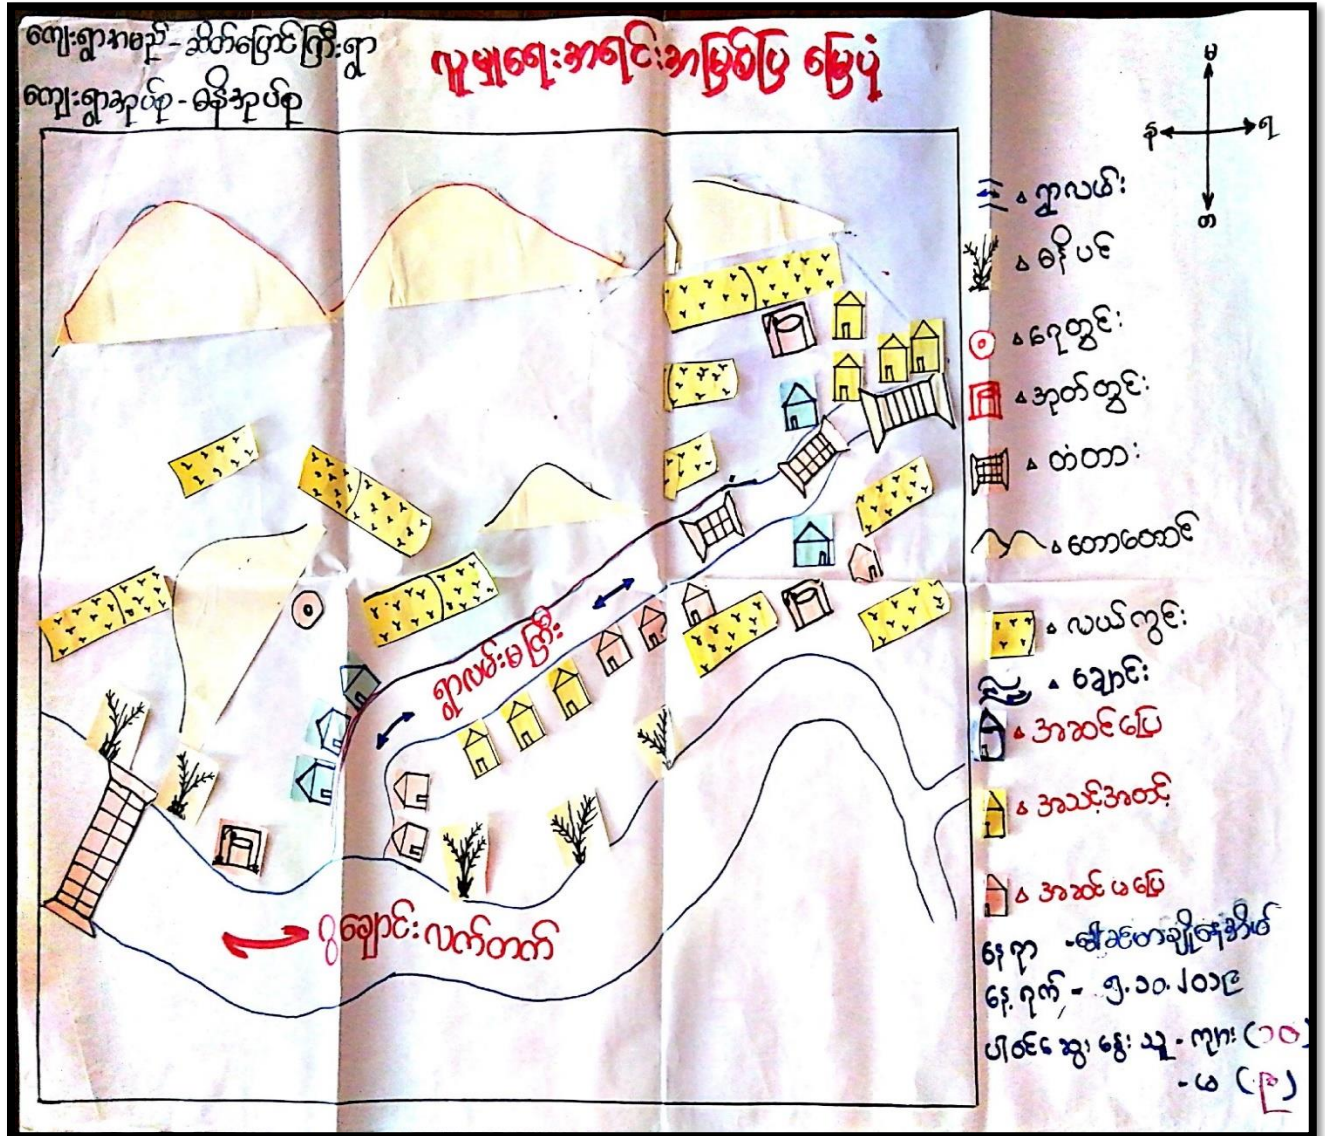 ကျေးရွာအမည် - ဆိတ်ပြောင်ကြီးရွာ
ကျေးရွာအုပ်စု - ဓနိအုပ်စု
လူမှုရေးအရင်းအမြစ်ပြ မြေပုံ
မ
န
ရ
တ
ရွာလမ်း
ဓနိပင်
ရေတွင်း
အုတ်တွင်း
တံတား
တောတောင်
လယ်ကွင်း
ချောင်း
အဆင်ပြေ
အသင့်အတင့်
အဆင်မပြေ
ရွာလမ်းမကြီး
ချောင်းလက်တက်
နေရာ -
နေ့ရက် - ၅.၁၀.၂၀၁၉
ပါဝင်ဆွေးနွေးသူ - ကျား (၁၀)
- မ